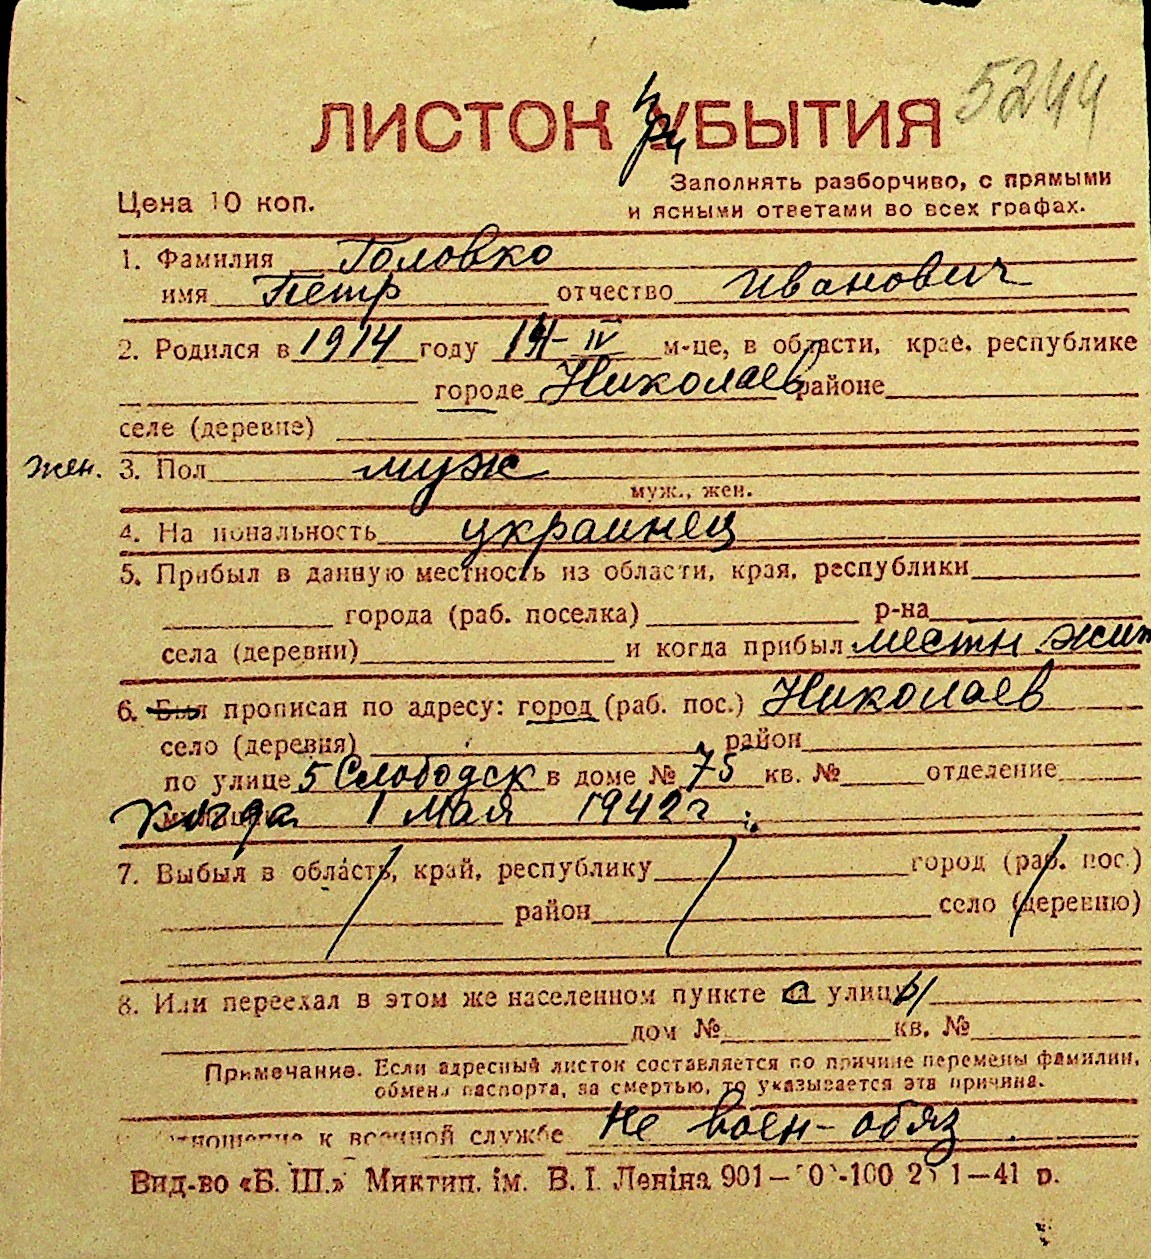 5244
ЛИСТОК УБЫТИЯ
при
Заполнять разборчиво, с прямыми
Цена 10 коп.
и ясными ответами во всех графах.
1. Фамилия Головко
имя Петр отчество Иванович
2. Родился в 1914 году 14-IV м-це, в области, крае, республике
городе Николаев районе
селе (деревне)
жен. 3. Пол муж
муж., жен.
4. Национальность украинец
5. Прибыл в данную местность из области, края, республики
города (раб. поселка) р-на
села (деревни) и когда прибыл местн жит
6. Был прописан по адресу: город (раб. пос.) Николаев
село (деревня) район
по улице 5 Слободск в доме № 75 кв. № отделение
когда 1 мая 1942 г.
7. Выбыл в область, край, республику город (раб. пос.)
район село (деревню)
8. Или переехал в этом же населенном пункте с улицы
дом № кв. №
Примечание. Если адресный листок составляется по причине перемены фамилии,
обмена паспорта, за смертью, то указывается эта причина.
отношение к военной службе Не воен-обяз
Вид-во «Б. Ш.» Миктип. ім. В. І. Леніна 901— 1—41 р.